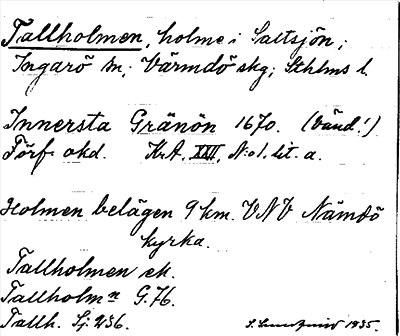 Tallholmen, holme i Saltsjön;
Ingarö sn; Värmdö skg; Sthlms l.
Innersta Gränön 1670. (Vänd!)
Förf. okd. K.A. XXV, N:o 1. lit. a.
Holmen belägen 9 km. VNV Nämdö
kyrka.
Tallholmen ek.
Tallholmn G.76.
Tallh. Sj. 256. 1935.